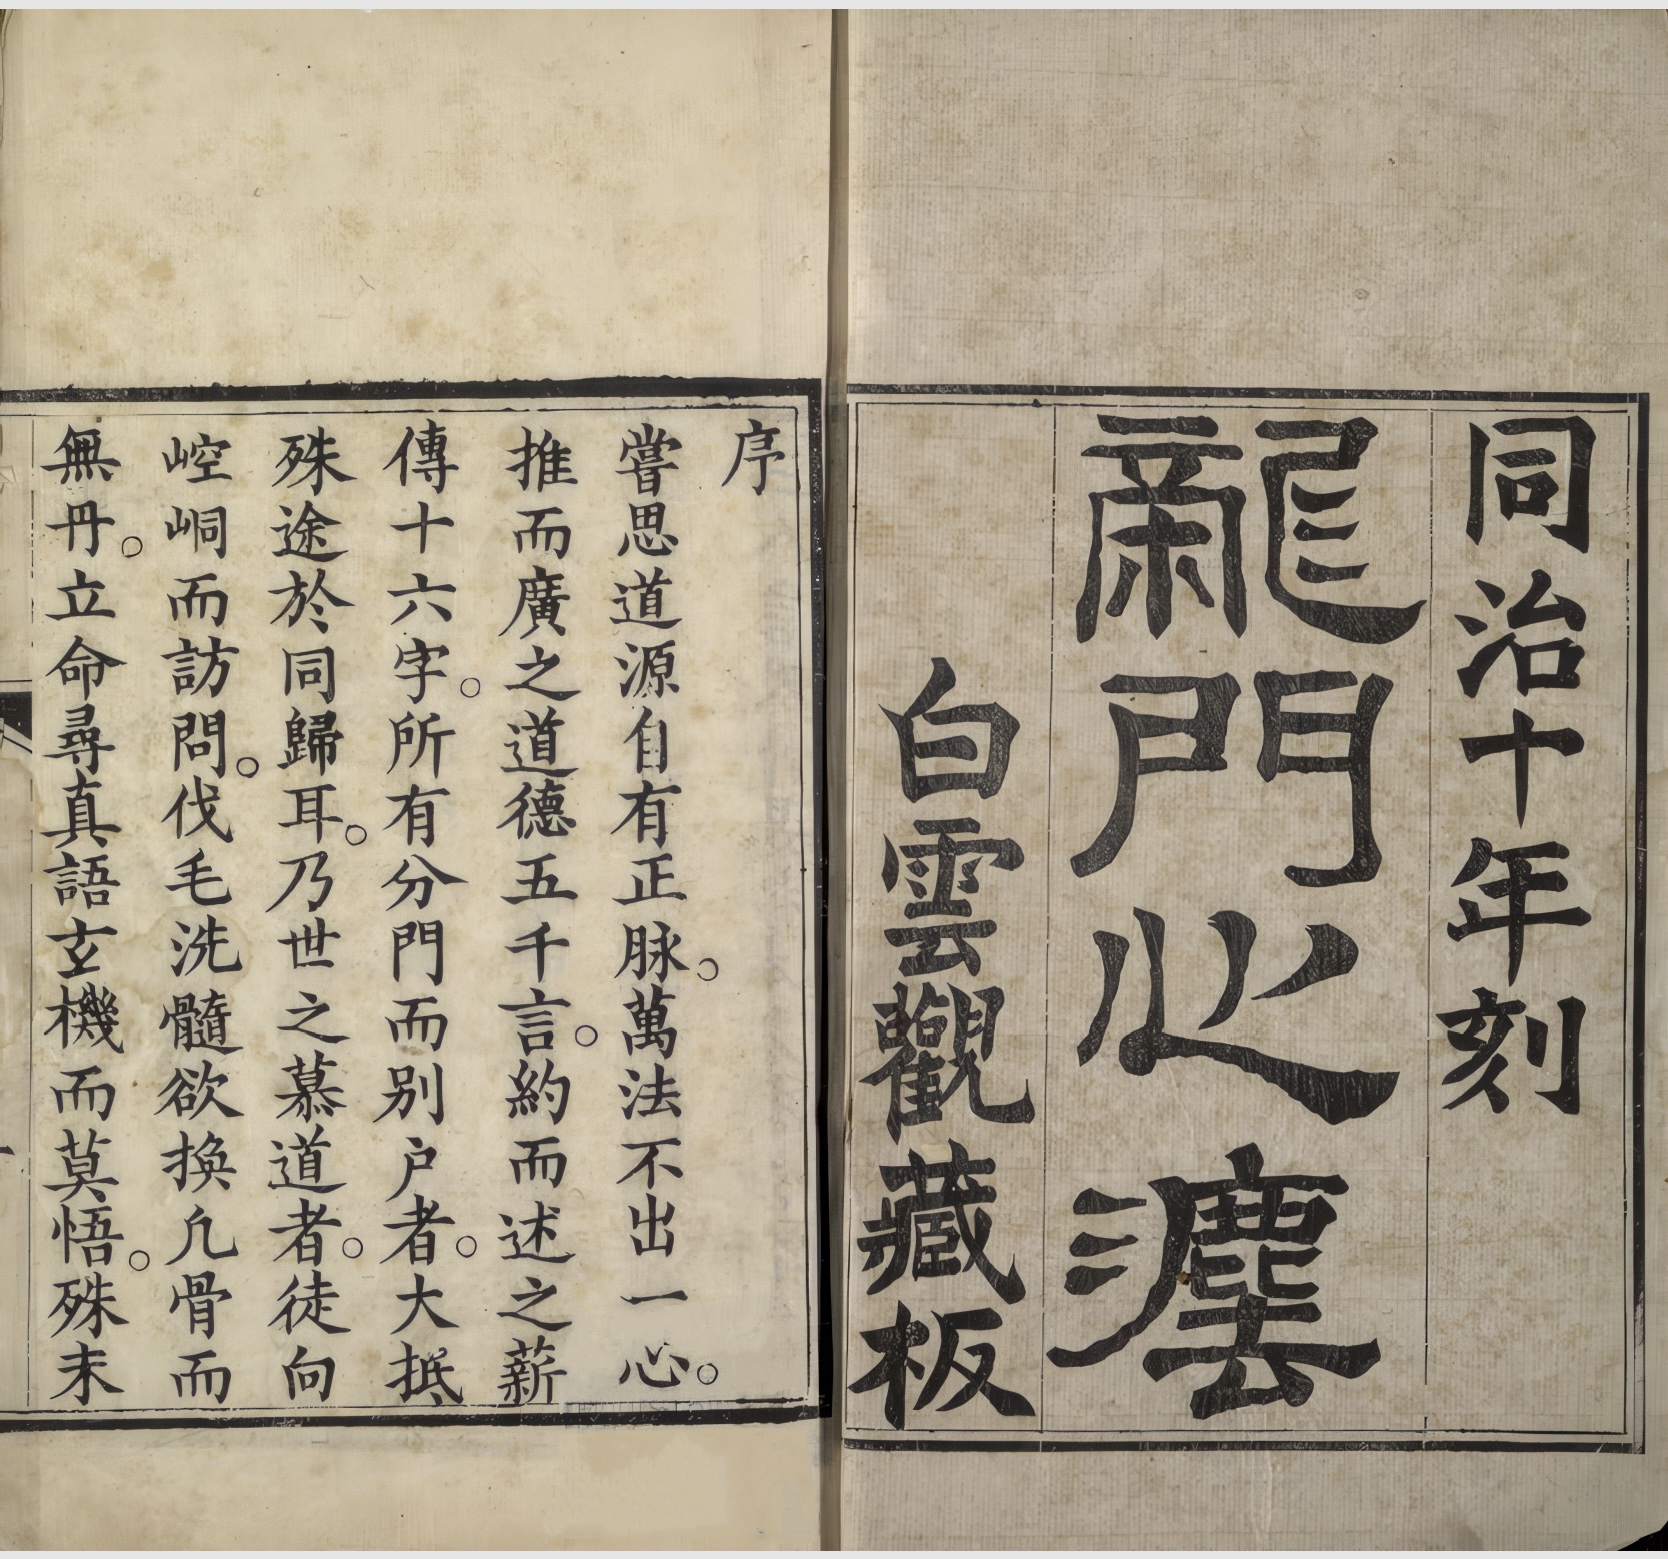 同治十年刻
龍門心瀍
白雲觀藏板
序
嘗思道源自有正脉。萬法不出一心。
推而廣之道德五千言。約而述之薪
傳十六字。所有分門而别户者。大抵
殊途於同歸耳。乃世之慕道者。徒向
崆峒而訪問。伐毛洗髓欲換凢骨而
無丹。立命尋真語玄機而莫悟。殊未